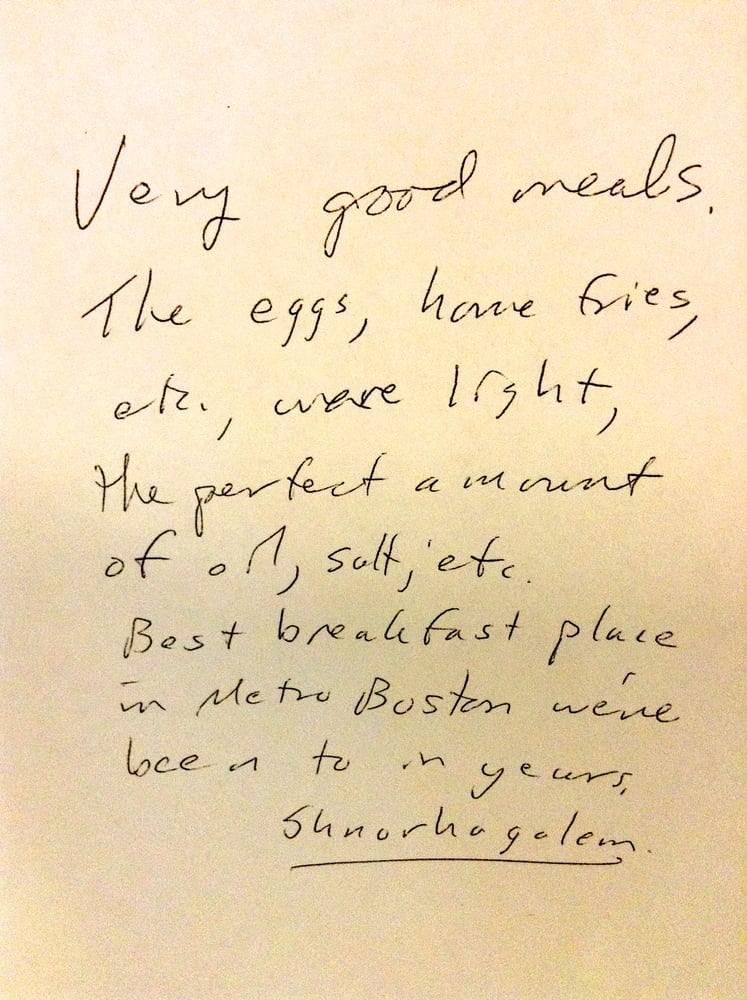 Very good meals.
The eggs, home fries,
etc., were light,
the perfect amount
of oil, salt, etc.
Best breakfast place
in Metro Boston we've
been to in years.
Shnorhagalem.